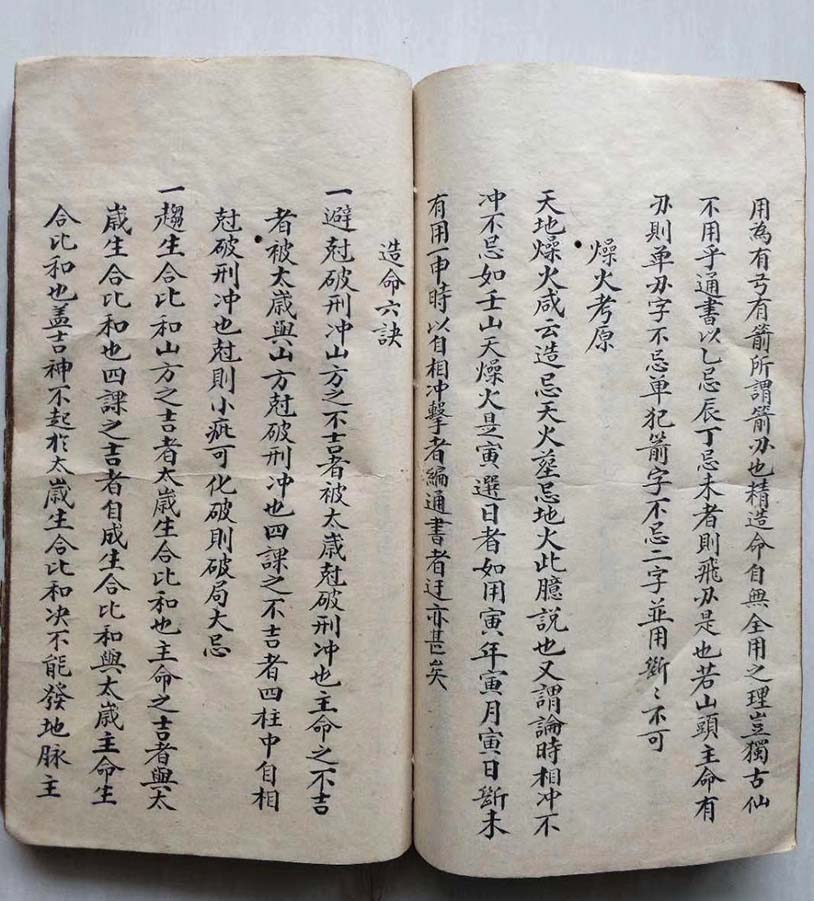 用為有弓有箭所謂箭刃也精造命自無全用之理豈獨古仙
不用乎通書以乙忌辰丁忌未者則飛刃是也若山頭主命有
刃則单刃字不忌单犯箭字不忌二字並用斷〻不可
燥火考原
天地燥火咸云造忌天火塟忌地火此臆説也又謂論時相冲不
冲不忌如壬山天燥火是寅選日者如用寅年寅月寅日斷未
有用一申時以自相冲擊者編通書者迂亦甚矣
造命六訣
一避尅破刑冲山方之不吉者被太歲尅破刑冲也主命之不吉
者被太歲與山方尅破刑冲也四課之不吉者四柱中自相
尅破刑冲也尅則小疵可化破則破局大忌
一趨生合比和山方之吉者太歲生合比和也主命之吉者與太
歲生合比和也四課之吉者自成生合比和與太歲主命生
合比和也盖吉神不起扵太歲生合比和决不能發地脉主